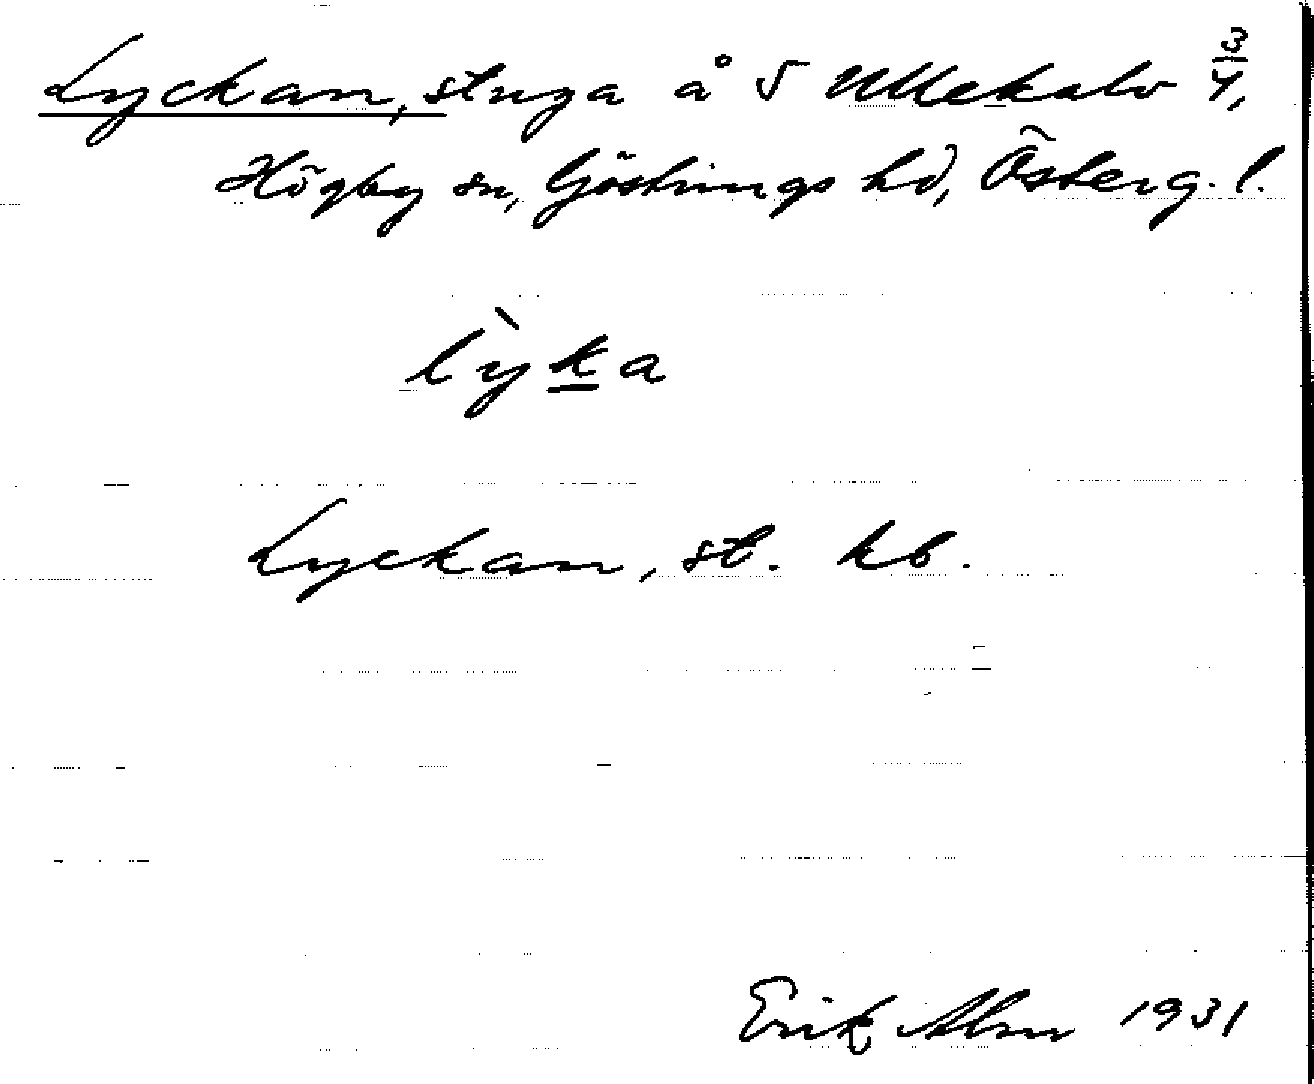 Lyckan, stuga å S Ullekalv 3/4,
Högby sn, Göstrings hd, Österg. l.
lỳka
Lyckan, st. kb.
Erik Alm 1931